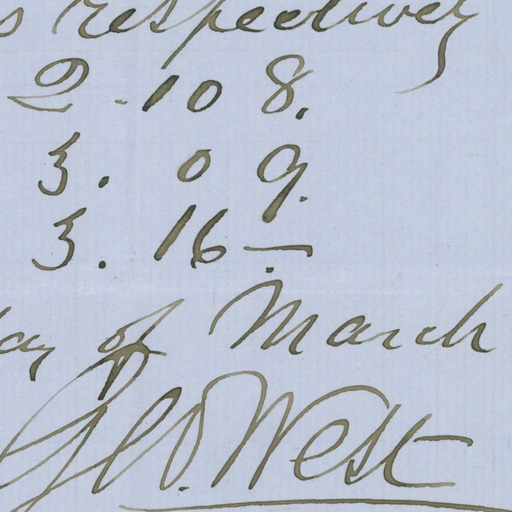 s respectively
2 . 10 8.
3. 0 9.
3. 16 —
day of March
Geo. West